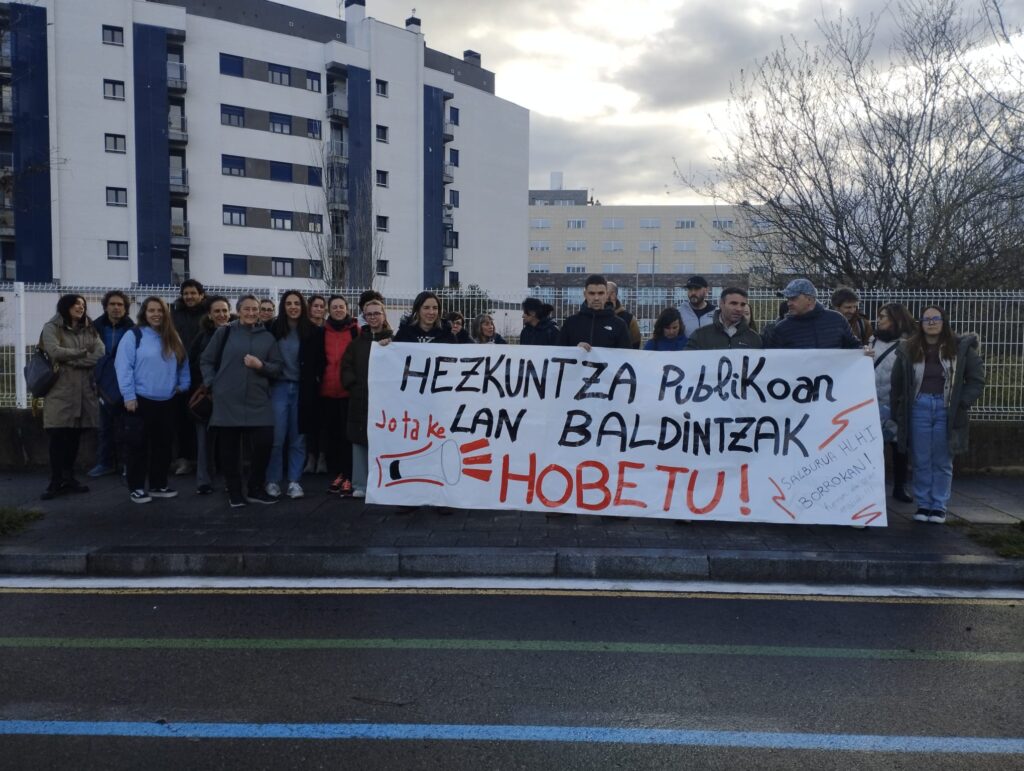 HEZKUNTZA PubliKoan
Jo ta ke
LAN BALDINTZAK
HOBETU!
SALBURUA HLHI
BORROKAN!